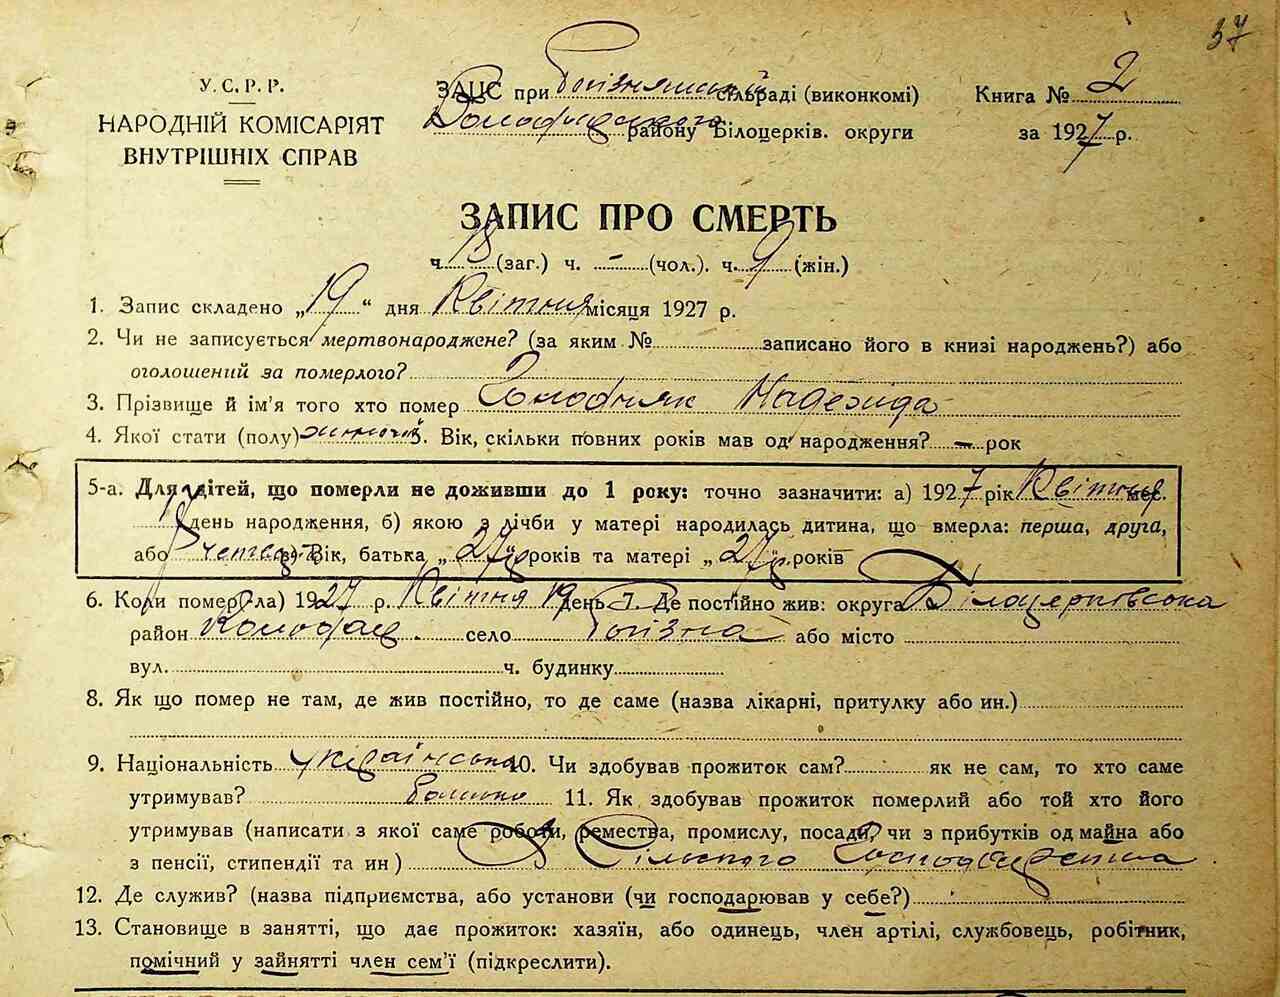 37
У.С.Р.Р.
НАРОДНІЙ КОМІСАРІЯТ
ВНУТРІШНІХ СПРАВ
ЗАЦС при сільраді (виконкомі)
району Білоцерків. округи
Книга № 2
за 1927 р.
ЗАПИС ПРО СМЕРТЬ
ч. 18 (заг.) ч. – (чол.). ч. 9 (жін.)
1. Запис складено „19“ дня Квітня місяця 1927 р.
2. Чи не записується мертвонароджене? (за яким № записано його в книзі народжень?) або
оголошений за померлого?
3. Прізвище й ім'я того хто помер Надежида
4. Якої стати (полу) жіночої. Вік, скільки повних років мав од народження? — рок
5-а. Для дітей, що померли не доживши до 1 року: точно зазначити: а) 1927 рік Квітня міс.
день народження, б) якою з лічби у матері народилась дитина, що вмерла: перша, друга,
або в) Вік, батька „27“ років та матері „27“ років
6. Коли помер(-ла) 1927 р. Квітня 19 день 7. Де постійно жив: округа Білоцерківська
район село або місто
вул. ч. будинку
8. Як що помер не там, де жив постійно, то де саме (назва лікарні, притулку або ин.)
9. Національність українська 10. Чи здобував прожиток сам? як не сам, то хто саме
утримував? батько 11. Як здобував прожиток померлий або той хто його
утримував (написати з якої саме роботи, ремества, промислу, посади, чи з прибутків од майна або
з пенсії, стипендії та ин) З Сільського Господарства
12. Де служив? (назва підприємства, або установи (чи господарював у себе?)
13. Становище в занятті, що дає прожиток: хазяїн, або одинець, член артілі, службовець, робітник,
помічний у зайнятті член сем'ї (підкреслити).